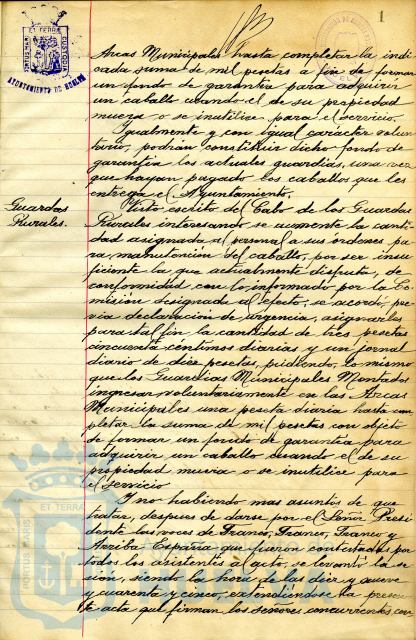 1
PORTUS MARIS ET TERRÆ CUSTODIA
AYUNTAMIENTO DE HUELVA
Arcas Municipales hasta completar la indi
cada suma de mil pesetas a fin de formar
un fondo de garantía para adquirir
un caballo cuando el de su propiedad
muera o se inutilice para el servicio.
Igualmente y con igual carácter volun
tario, podrán constituir dicho fondo de
garantía los actuales guardias, una vez
que hayan pagado los caballos que les
entregue el Ayuntamiento.
Guardas
Rurales.
Visto escrito del Cabo de los Guardas
Rurales interesando se aumente la canti
dad asignada al personal a sus ordenes pa
ra, manutención del caballo, por ser insu
ficiente la que actualmente disfruta, de
conformidad con lo informado por la Co
misión designada al efecto, se acordó, pre
via declaración de urgencia, asignarles
para tal fin la cantidad de tres pesetas
cincuenta céntimos diarias y un jornal
diario de diez pesetas, pudiendo, lo mismo
que los Guardias Municipales Montados
ingresar voluntariamente en las Arcas
Municipales una peseta diaria hasta com
pletar la suma de mil pesetas con objeto
de formar un fondo de garantía para
adquirir un caballo cuando el de su
propiedad muera o se inutilice para
el servicio
Y no habiendo mas asuntos de que
tratar, despues de darse por el Señor Presi
dente las voces de Franco, Franco, Franco y
Arriba España que fueron contestadas por
todos los asistentes al acto, se levantó la se
sión, siendo la hora de las diez y nueve
y cuarenta y cinco, extendiéndose la presen
te acta que firman los señores concurrentes con
PORTUS MARIS ET TERRÆ